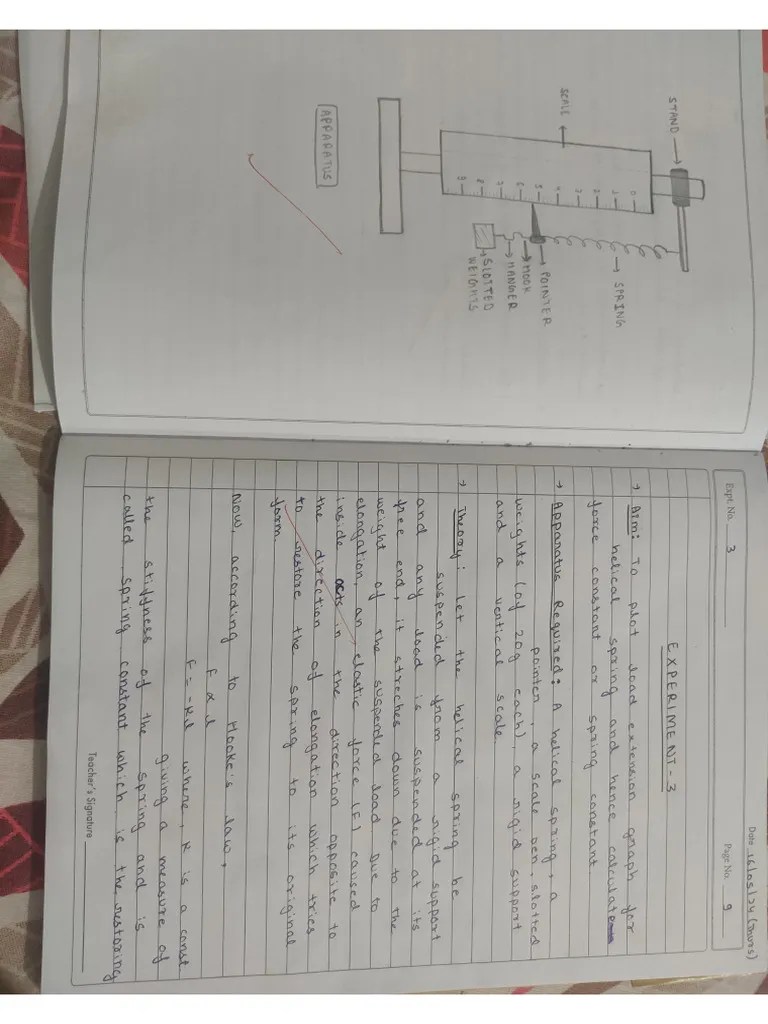 STAND
SCALE
0
1
2
3
4
5
6
7
8
9
SPRING
POINTER
HOOK
HANGER
SLOTTED
WEIGHTS
APPARATUS
Date 16/05/24 (Thurs)
Expt. No. 3
Page No. 9
EXPERIMENT-3
→ Aim: To plot load extension graph for
helical spring and hence calculate
force constant or spring constant
→ Apparatus Required: A helical spring, a
pointer, a scale pen, slotted
weights (of 20g each), a rigid support
and a vertical scale.
→ Theory: Let the helical spring be
suspended from a rigid support
and any load is suspended at its
free end, it streches down due to the
weight of the suspended load Due to
elongation, an elastic force (F) caused
inside acts in the direction opposite to
the direction of elongation which tries
to restore the spring to its original
form.
Now, according to Hooke's law,
F ∝ l
F = -Kl where, K is a const
giving a measure of
the stiffness of the spring and is
called spring constant which, is the restoring
Teacher's Signature